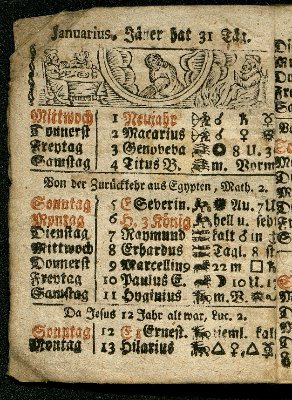 Januarius, Jäner hat 31 Täg.
Mittwoch 1 Neujahr
Donnerst 2 Macarius
Freytag 3 Genoveva 8 U. 3
Samstag 4 Titus B. m. Vorm
Von der Zurückkehr aus Egypten, Math. 2.
Sonntag 5 E Severin. Au. 7U
Montag 6 H. 3 König hell u. sch
Dienstag 7 Raymund kalt in
Mittwoch 8 Erhardus Tagl. 8 st
Donnerst 9 Marcellin9 22 m
Freytag 10 Paulus E. 10 U. 1
Samstag 11 Hyginius m. V.
Da Jesus 12 Jahr alt war, Luc. 2.
Sonntag 12 E 1 Ernest. neml. kal
Montag 13 Hilarius